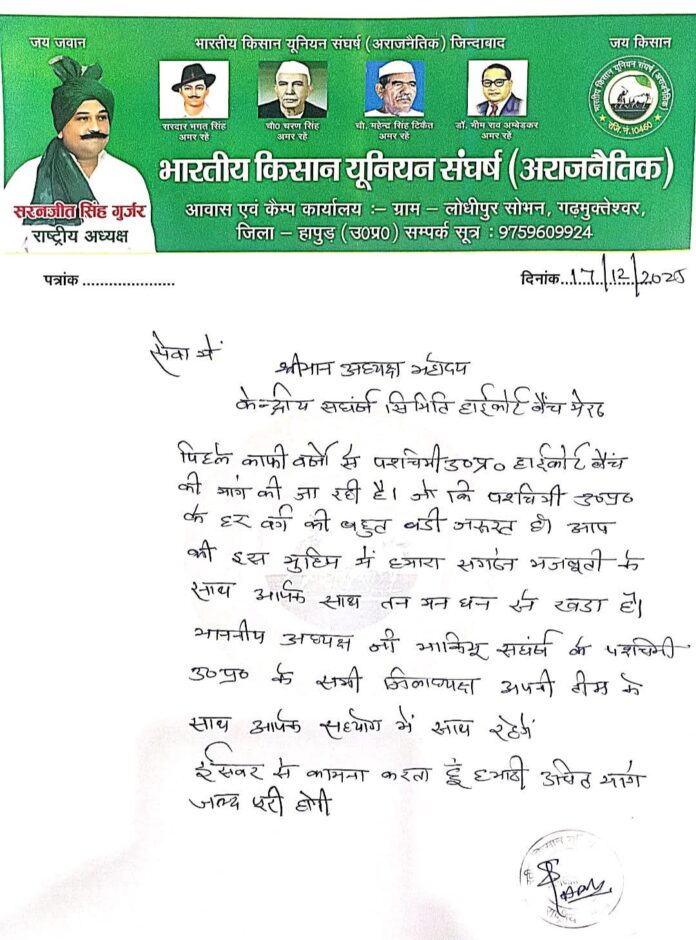 जय जवान
भारतीय किसान यूनियन संघर्ष (अराजनैतिक) जिन्दाबाद
जय किसान
सरदार भगत सिंह
अमर रहे
चौ0 चरण सिंह
अमर रहे
चौ. महेन्द्र सिंह टिकैत
अमर रहे
डॉ. भीम राव अम्बेडकर
अमर रहे
भारतीय किसान यूनियन संघर्ष (अराजनैतिक)
रजि. नं. 10460
भारतीय किसान यूनियन संघर्ष (अराजनैतिक)
सरनजीत सिंह गुर्जर
राष्ट्रीय अध्यक्ष
आवास एवं कैम्प कार्यालय :– ग्राम – लोधीपुर सोभन, गढ़मुक्तेश्वर,
जिला – हापुड़ (उ0प्र0) सम्पर्क सूत्र : 9759609924
पत्रांक ......................
दिनांक...17/12/2025
सेवा में
श्रीमान अध्यक्ष महोदय
केन्द्रीय सघंर्ष समिति हाईकोर्ट बैंच मेरठ
पिछले काफी वर्षो से पशचिमी उ०प्र० हाईकोर्ट बैंच
की मांग की जा रही है। जो कि पशचिमी उ०प्र०
के हर वर्ग की बहुत बडी जरूरत है। आप
की इस मुहिम में हमारा सगंठन मजबूती के
साथ आपके साथ तन मन धन से खडा है।
माननीय अध्यक्ष जी भाकियू सघंर्ष के पशचिमी
उ०प्र० के सभी जिलाध्यक्ष अपनी टीम के
साथ आपके सहयोग में साथ रहेगें
ईसवर से कामना करता हूं हमारी उचित मांग
जल्द पूरी होगी